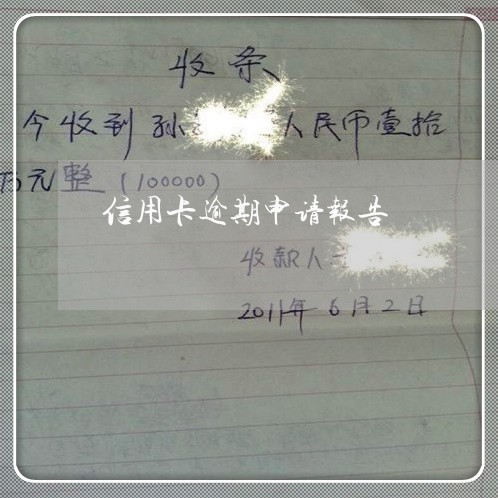 收条
今收到孙 人民币壹拾
万元整(100000)
信用卡逾期申请报告
收款人
2011年6月2日